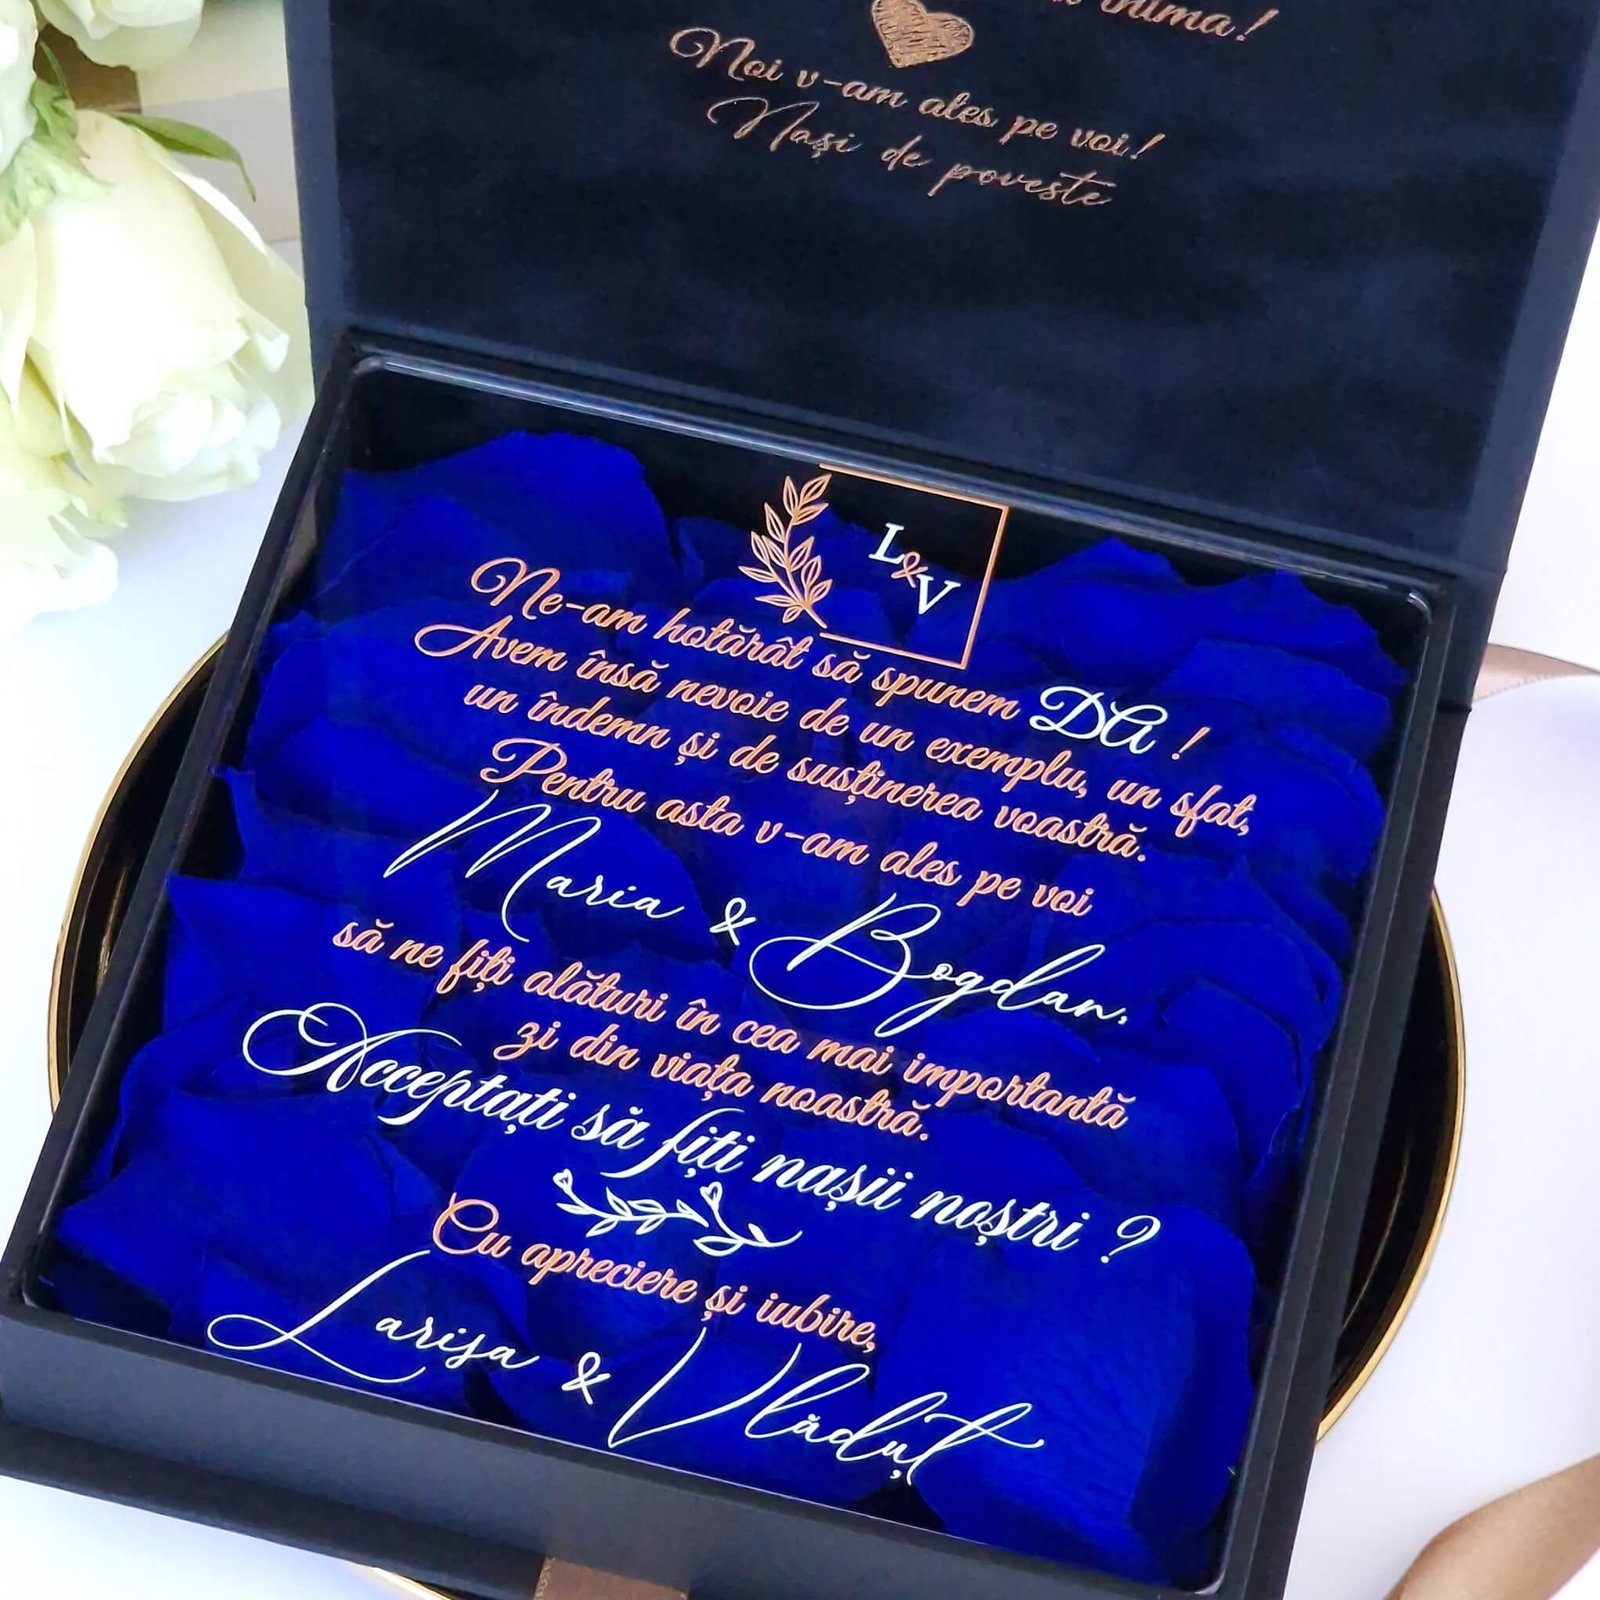 inima!
Noi v-am ales pe voi!
Nași de poveste
L&V
Ne-am hotărât să spunem DA !
Avem însă nevoie de un exemplu, un sfat,
un îndemn și de susținerea voastră.
Pentru asta v-am ales pe voi
Maria & Bogdan,
să ne fiți alături în cea mai importantă
zi din viața noastră.
Acceptați să fiți nașii noștri ?
Cu apreciere și iubire,
Larisa & Vlăduț